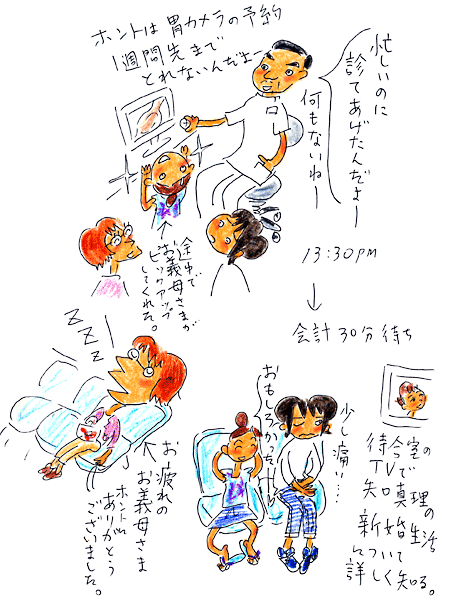 忙しいのに
診てあげたんだよー
何もないねー
ホントは胃カメラの予約
1週間先まで
とれないんだよー
途中で
お義母さまが
ピックアップ
してくれた。
13:30PM
↓
会計30分待ち
ZZZ
お疲れの
お義母さま
ホントに
ありがとう
ございました。
おもしろかったー
少し痛い…
待合室の
TVで
知口真理の
新婚生活
について
詳しく知る。